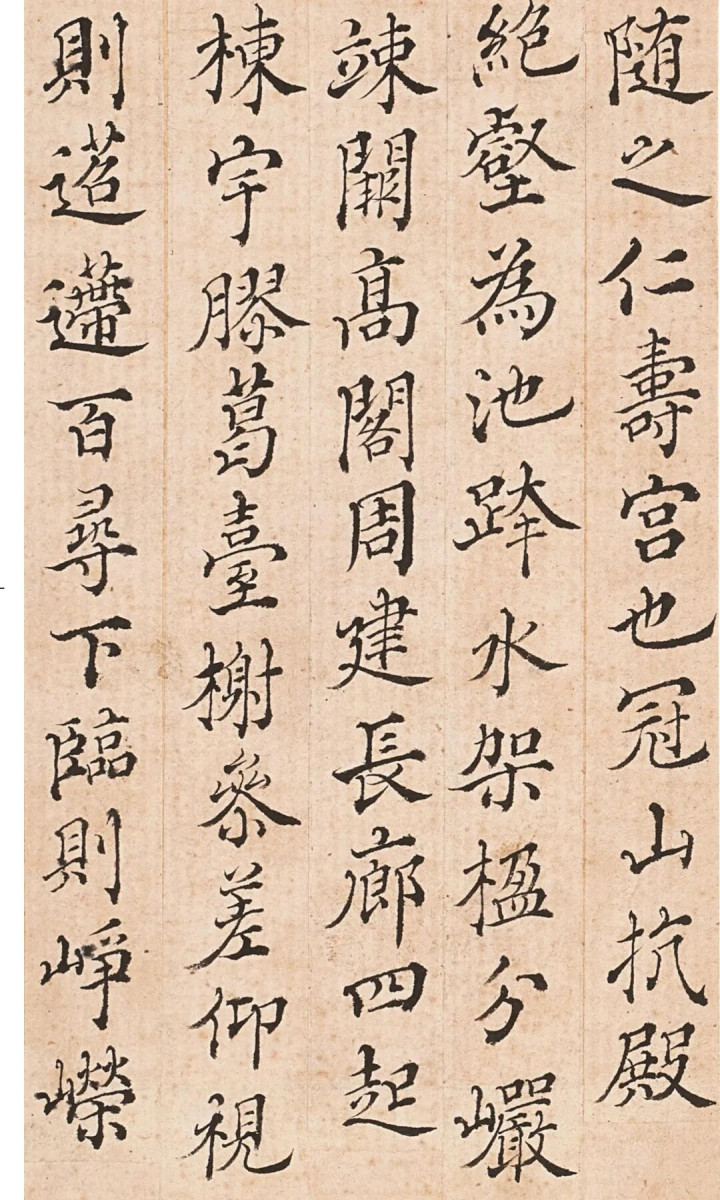 随之仁壽宮也冠山抗殿
絕壑為池跨水架楹分巖
竦闕髙閣周建長廊四起
棟宇膠葛臺榭參差仰視
則迢遰百尋下臨則崢嶸